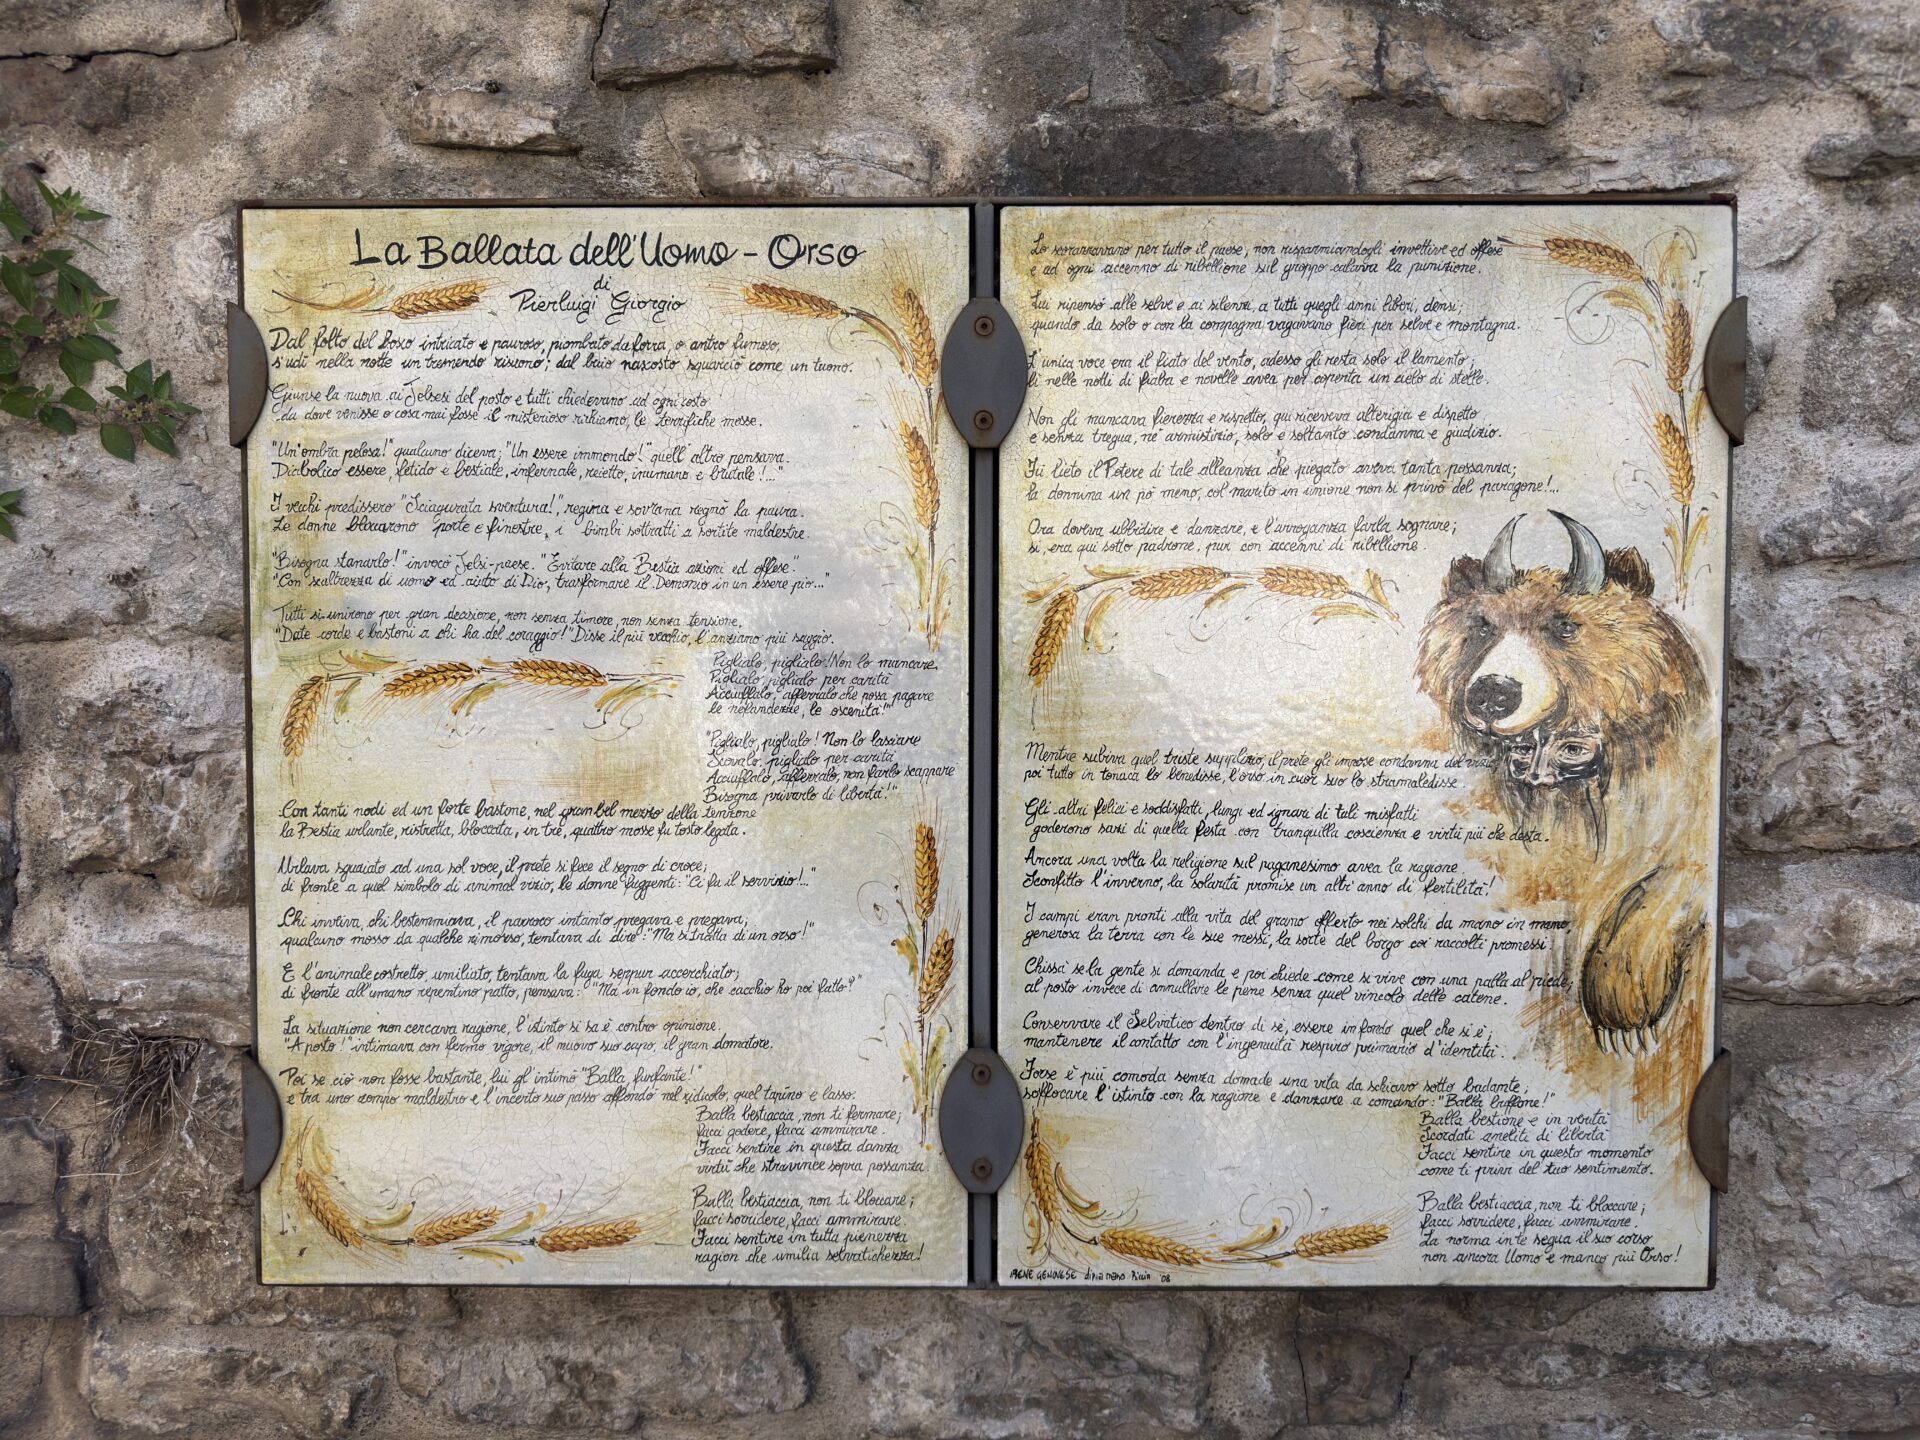 La Ballata dell'Uomo - Orso
di
Pierluigi Giorgio
Dal folto del bosco intricato e pauroso, piombato da forra, o antro fumoso,
s'udì nella notte un tremendo risuono; dal buio nascosto squarciò come un tuono.
Giunse la nuova ai Jelsesi del posto e tutti chiedevano ad ogni costo
da dove venisse o cosa mai fosse il misterioso richiamo, le terrifiche mosse.
"Un'ombra pelosa!" qualcuno diceva; "Un essere immondo!" quell'altro pensava.
Diabolico essere, fetido e bestiale, infernale, reietto, inumano e brutale!..."
I vecchi predissero "Sciagurata sventura!", regina e sovrana regnò la paura.
Le donne bloccarono porte e finestre, i bimbi sottratti a sortite maldestre.
"Bisogna stanarlo!" invocò Jelsi-paese. "Evitare alla Bestia azioni ed offese."
"Con scaltrezza di uomo ed aiuto di Dio, trasformare il Demonio in un essere pio..."
Tutti si unirono per gran decisione, non senza timore, non senza tensione.
"Date corde e bastoni a chi ha del coraggio!" Disse il più vecchio, l'anziano più saggio.
Piglialo, piglialo! Non lo mancare
Piglialo, piglialo per carità
Acciuffalo, afferralo che possa pagare
le nefandezze, le oscenità!"
"Piglialo, piglialo! Non lo lasciare
Scovalo, piglialo per carità
Acciuffalo, afferralo, non farlo scappare
Bisogna privarlo di libertà!"
Con tanti nodi ed un forte bastone, nel gran bel mezzo della tenzone
la Bestia urlante, ristretta, bloccata, in tre, quattro mosse fu tosto legata.
Urlava sguaiato ad una sol voce, il prete si fece il segno di croce;
di fronte a quel simbolo di animal vizio, le donne fuggenti: "Ci fu il servizio!..."
Chi inviva, chi bestemmiava, il parroco intanto pregava e pregava;
qualcuno mosso da qualche rimorso, tentava di dire: "Ma si tratta di un orso!"
E l'animale costretto, umiliato, tentava la fuga seppur accerchiato;
di fronte all'umano repentino patto, pensava: "Ma in fondo io, che cacchio ho poi fatto?"
La situazione non cercava ragione, l'istinto si sa è contro opinione.
"A posto!" intimava con fermo vigore, il nuovo suo capo, il gran domatore.
Poi se ciò non fosse bastante, lui gl'intimò "Balla furfante!"
e tra uno zompo maldestro e l'incerto suo passo affondò nel ridicolo, quel tapino e lasso.
Balla bestiaccia, non ti fermare;
facci godere, facci ammirare.
Facci sentire in questa danza
virtù che stravince sopra possanza.
Balla bestiaccia, non ti bloccare;
facci sorridere, facci ammirare.
Facci sentire in tutta pienezza
ragion che umilia selvatichezza!
Lo scorazzavano per tutto il paese, non risparmiandogli invettive ed offese
e ad ogni accenno di ribellione sul groppo calava la punizione.
Lui ripensò alle selve e ai silenzi, a tutti quegli anni liberi, densi;
quando da solo o con la compagna vagavano fieri per selve e montagna.
L'unica voce era il fiato del vento, adesso gli resta solo il lamento;
lì nelle notti di fiaba e novelle avea per coperta un cielo di stelle.
Non gli mancava fierezza e rispetto, qui riceveva alterigia e dispetto
e senza tregua, né armistizio, solo e soltanto condanna e giudizio.
Fu lieto il Potere di tale alleanza che piegato aveva tanta possanza;
la donnina un pò meno, col marito in unione non si privò del paragone!...
Ora doveva ubbidire e danzare, e l'arroganza farla sognare;
sì, era qui sotto padrone, pur con accenni di ribellione.
Mentre subiva quel triste supplizio, il prete gli impose condanna del vizio
poi tutto in tonaca lo benedisse, l'orso in cuor suo lo stramaledisse.
Gli altri felici e soddisfatti, lungi ed ignari di tali misfatti
goderono sazi di quella festa con tranquilla coscienza e virtù più che desta.
Ancora una volta la religione sul paganesimo avea la ragione.
Sconfitto l'inverno, la solarità promise un altr'anno di fertilità!
I campi eran pronti alla vita del grano offerto nei solchi da mano in mano,
generosa la terra con le sue messi, la sorte del borgo coi raccolti promessi.
Chissà se la gente si domanda e poi chiede come si vive con una palla al piede;
al posto invece di annullare le pene senza quel vincolo delle catene.
Conservare il Selvatico dentro di sè, essere in fondo quel che si è;
mantenere il contatto con l'ingenuità respiro primario d'identità.
Forse è più comoda senza domade una vita da schiavo sotto badante;
soffocare l'istinto con la ragione e danzare a comando: "Balla buffone!"
Balla bestione e in verità
Scordati aneliti di libertà
Facci sentire in questo momento
come ti privi del tuo sentimento.
Balla bestiaccia, non ti bloccare;
facci sorridere, facci ammirare.
La norma in te segua il suo corso
non ancora Uomo e manco più Orso!
IRENE GENOVESE '08